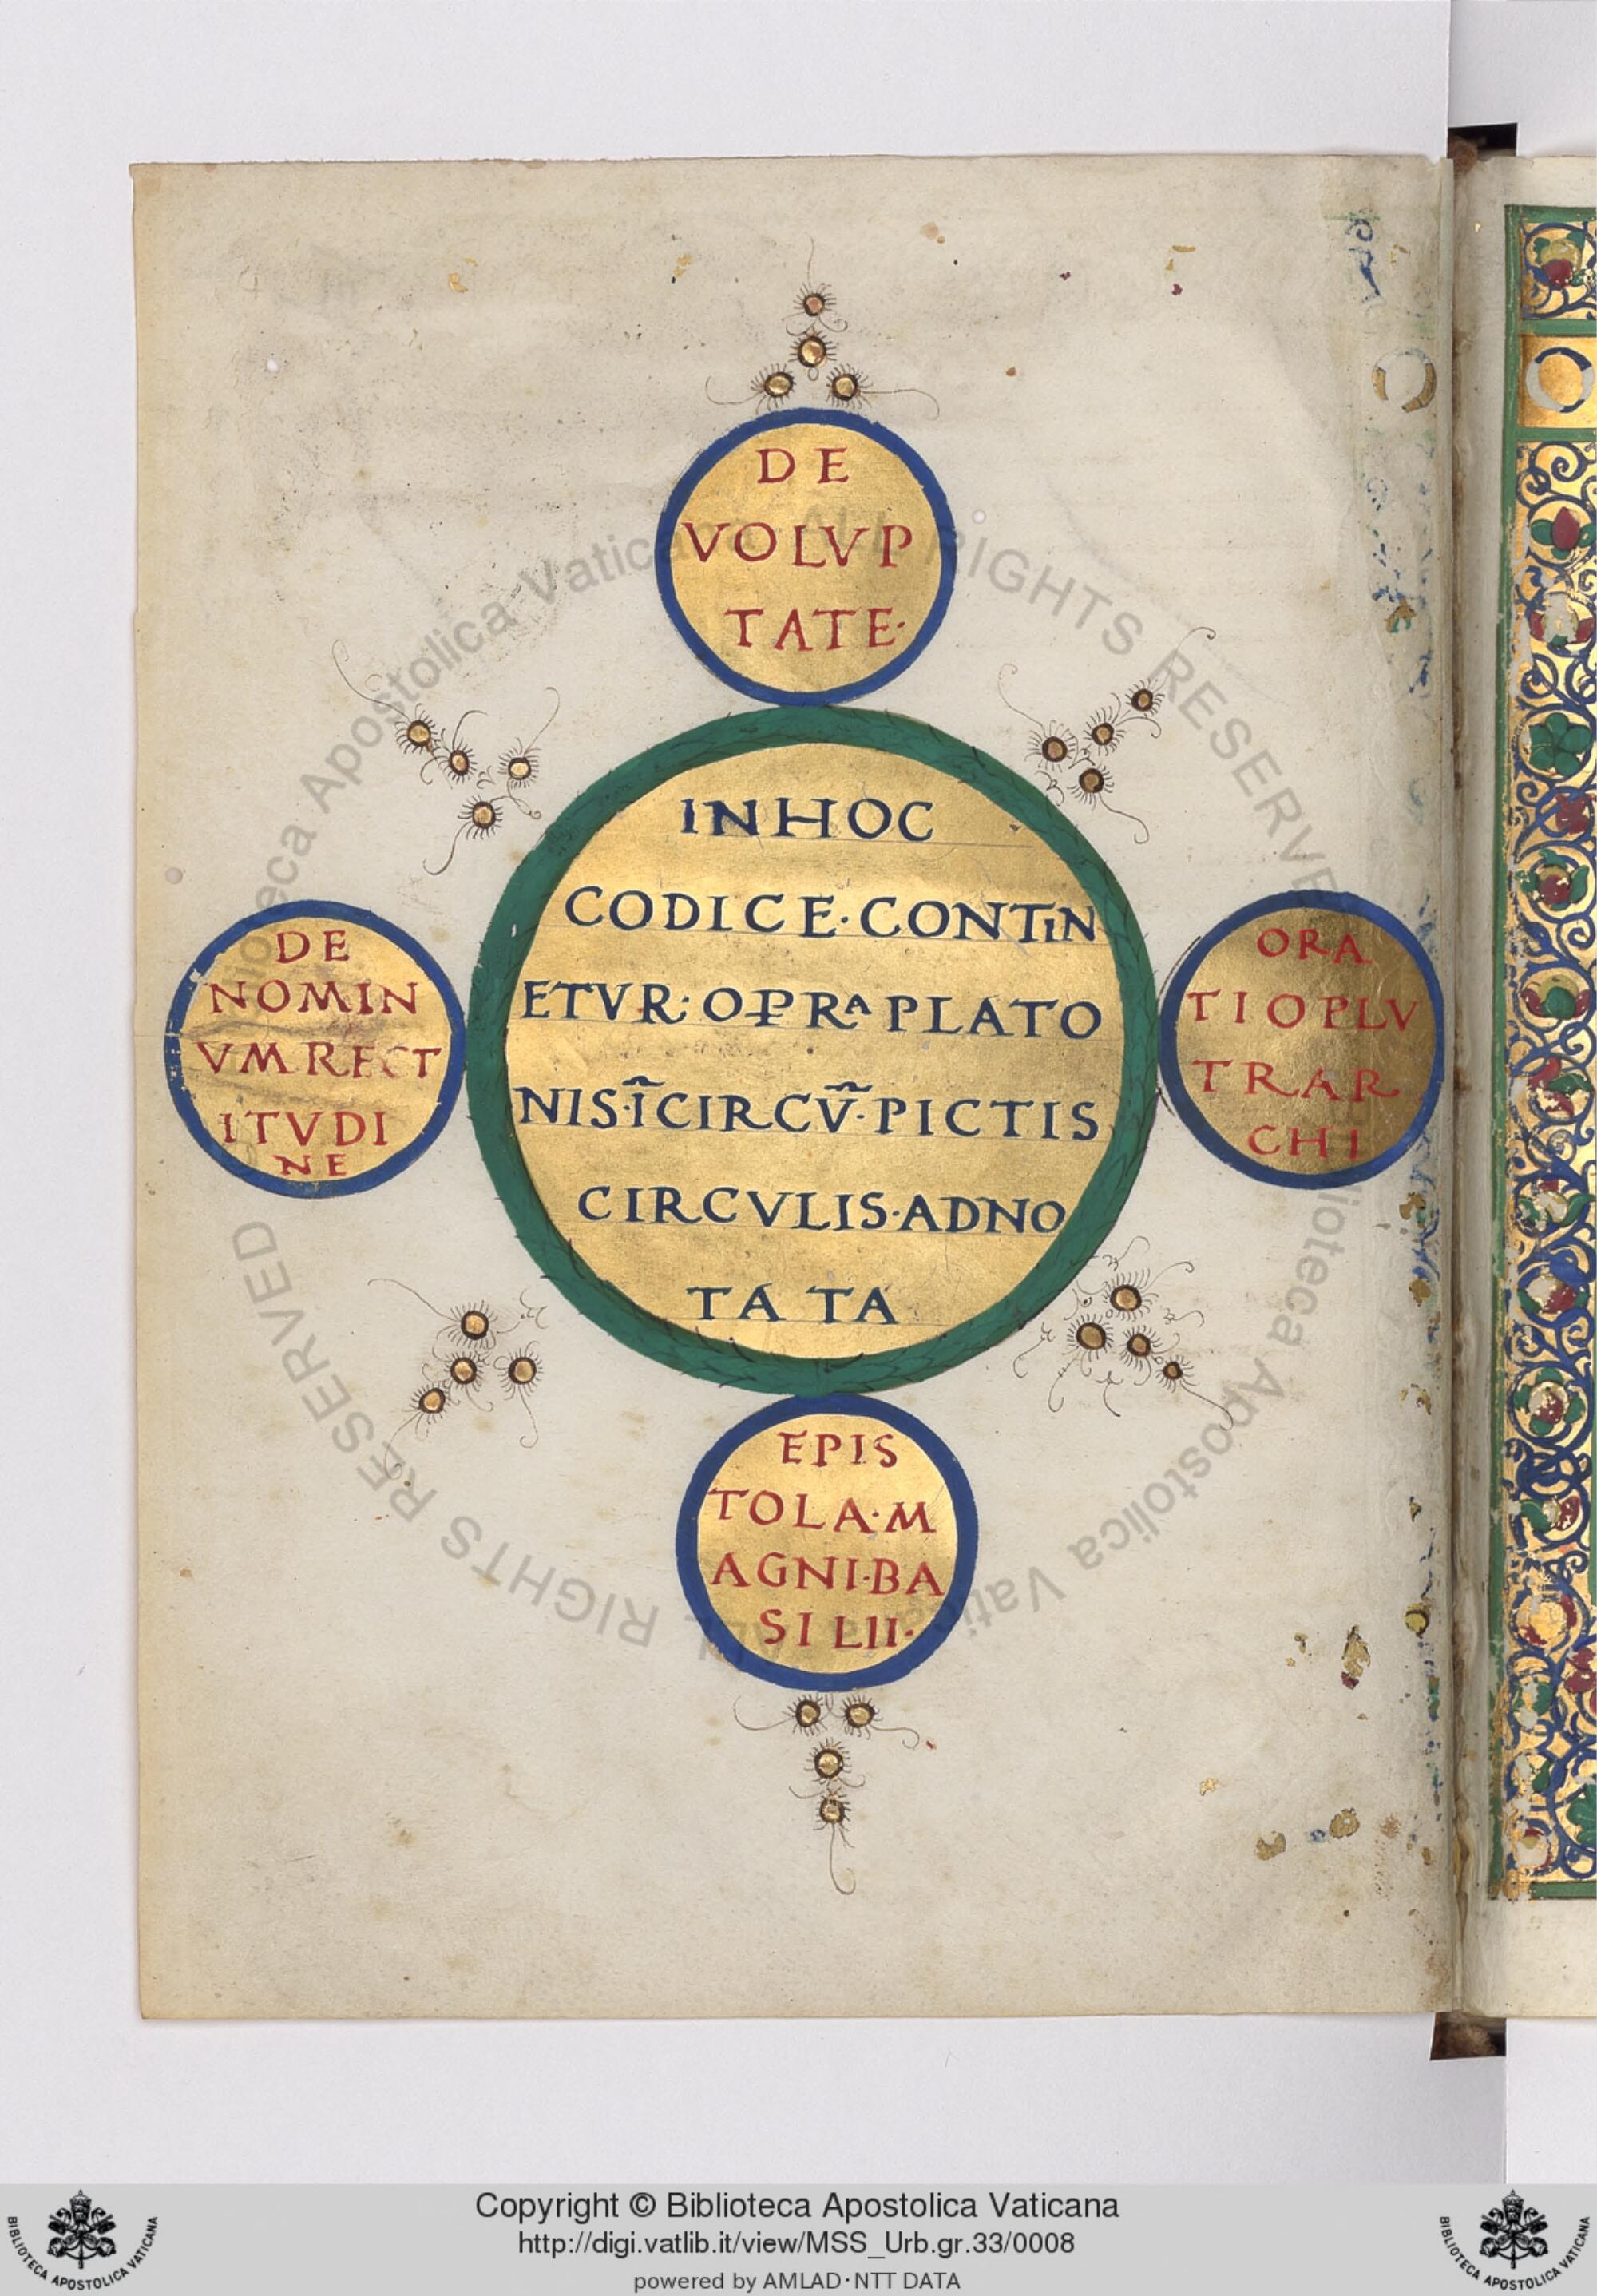 DE
VOLVP
TATE·
INHOC
CODICE·CONTIN
ETVR: OꝐRᴬ PLATO
NIS·ĪCIRCV̄·PICTIS
CIRCVLIS·ADNO
TA TA
DE
NOMIN
VM RECT
ITVDI
NE
ORA
TIO PLV
TRAR
CHI
EPIS
TOLA·M
AGNI·BA
SI LII·
Biblioteca Apostolica Vaticana ALL RIGHTS RESERVED
Biblioteca Apostolica Vaticana ALL RIGHTS RESERVED
Copyright © Biblioteca Apostolica Vaticana
http://digi.vatlib.it/view/MSS_Urb.gr.33/0008
powered by AMLAD·NTT DATA
BIBLIOTECA APOSTOLICA VATICANA
BIBLIOTECA APOSTOLICA VATICANA